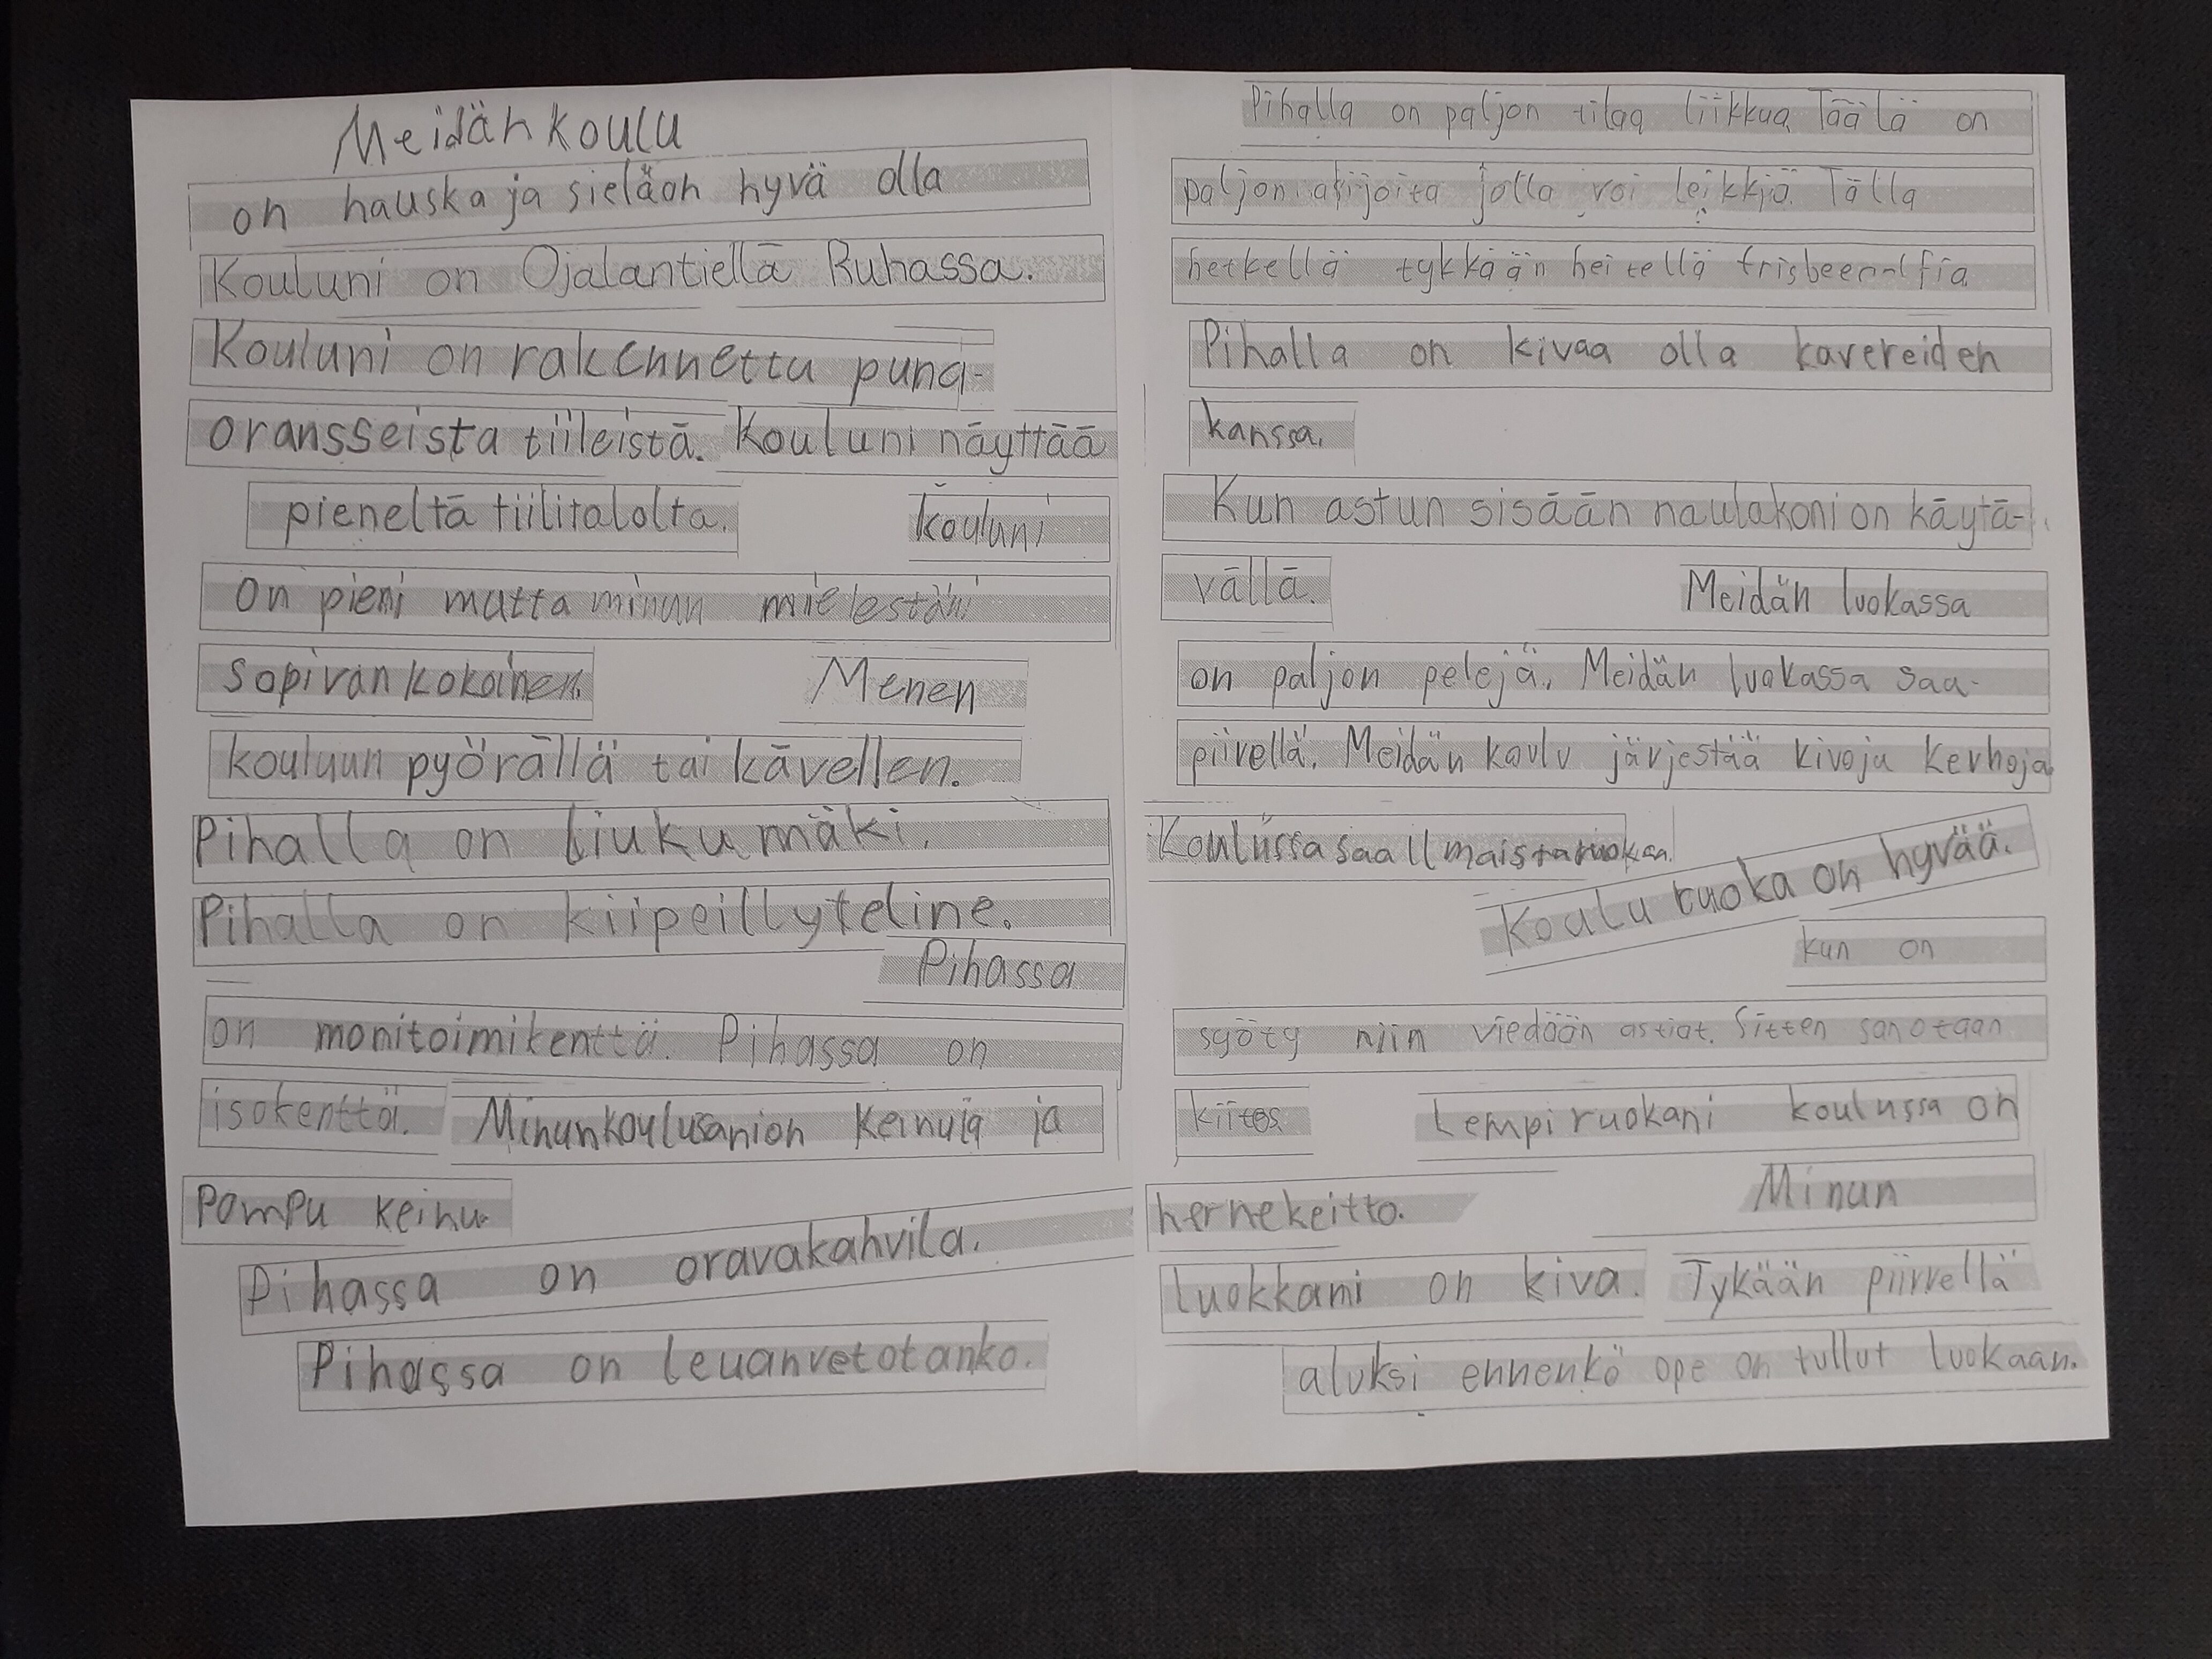 Meidän koulu
on hauska ja sieläon hyvä olla
Kouluni on Ojalantiellä Ruhassa.
Kouluni on rakennettu puna-
oransseista tiileistä. Kouluni näyttää
pieneltä tiilitalolta. Kouluni
on pieni mutta minun mielestäni
sopivan kokoinen. Menen
kouluun pyörällä tai kävellen.
Pihalla on liukumäki.
Pihalla on kiipeillyteline.
Pihassa
on monitoimikenttä. Pihassa on
isokenttä. Minunkoulusanion Keinuja ja
Pompu keinu.
Pihassa on oravakahvila.
Pihassa on leuanvetotanko.
Pihalla on paljon tilaa liikkua. Täälä on
paljon asijoita jolla voi leikkiä. Tällä
hetkellä tykkään heitellä frisbeegolfia.
Pihalla on kivaa olla kavereiden
kanssa.
Kun astun sisään naulakoni on käytä-
vällä. Meidän luokassa
on paljon pelejä. Meidän luokassa saa
piirellä. Meidän koulu järjestää kivoja kerhoja.
Koulussa saa ilmaista ruokaa.
Koulu ruoka on hyvää.
kun on
syöty niin viedään astiat. Sitten sanotaan
kiitos. Lempiruokani koulussa on
hernekeitto. Minun
luokkani on kiva. Tykään piirrellä
aluksi ennenkö ope on tullut luokaan.